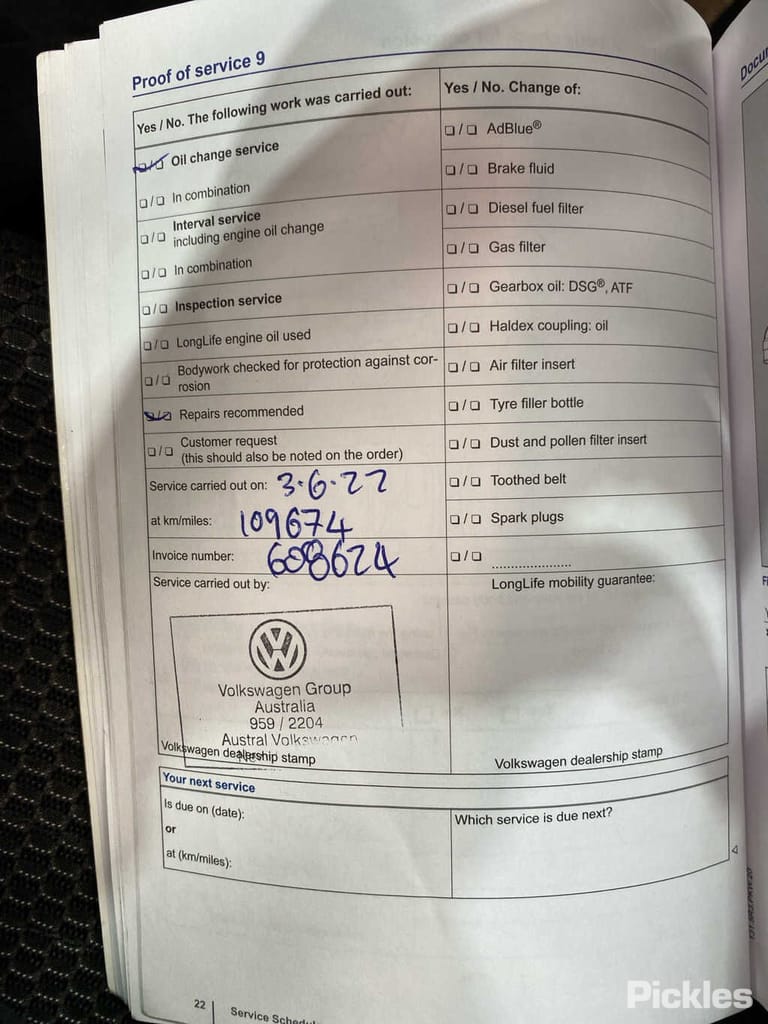 Proof of service 9
Yes / No. The following work was carried out:
☐/☐ Oil change service
☐/☐ In combination
☐/☐ Interval service
including engine oil change
☐/☐ In combination
☐/☐ Inspection service
☐/☐ LongLife engine oil used
☐/☐ Bodywork checked for protection against cor-
rosion
☐/☐ Repairs recommended
☐/☐ Customer request
(this should also be noted on the order)
Service carried out on: 3.6.22
at km/miles: 109674
Invoice number: 608624
Service carried out by:
Volkswagen Group
Australia
959 / 2204
Austral Volkswagen
Volkswagen dealership stamp
Yes / No. Change of:
☐/☐ AdBlue®
☐/☐ Brake fluid
☐/☐ Diesel fuel filter
☐/☐ Gas filter
☐/☐ Gearbox oil: DSG®, ATF
☐/☐ Haldex coupling: oil
☐/☐ Air filter insert
☐/☐ Tyre filler bottle
☐/☐ Dust and pollen filter insert
☐/☐ Toothed belt
☐/☐ Spark plugs
☐/☐ ......................
LongLife mobility guarantee:
Volkswagen dealership stamp
Your next service
Is due on (date):
or
at (km/miles):
Which service is due next?
22
Service Schedul
Docum
Pickles